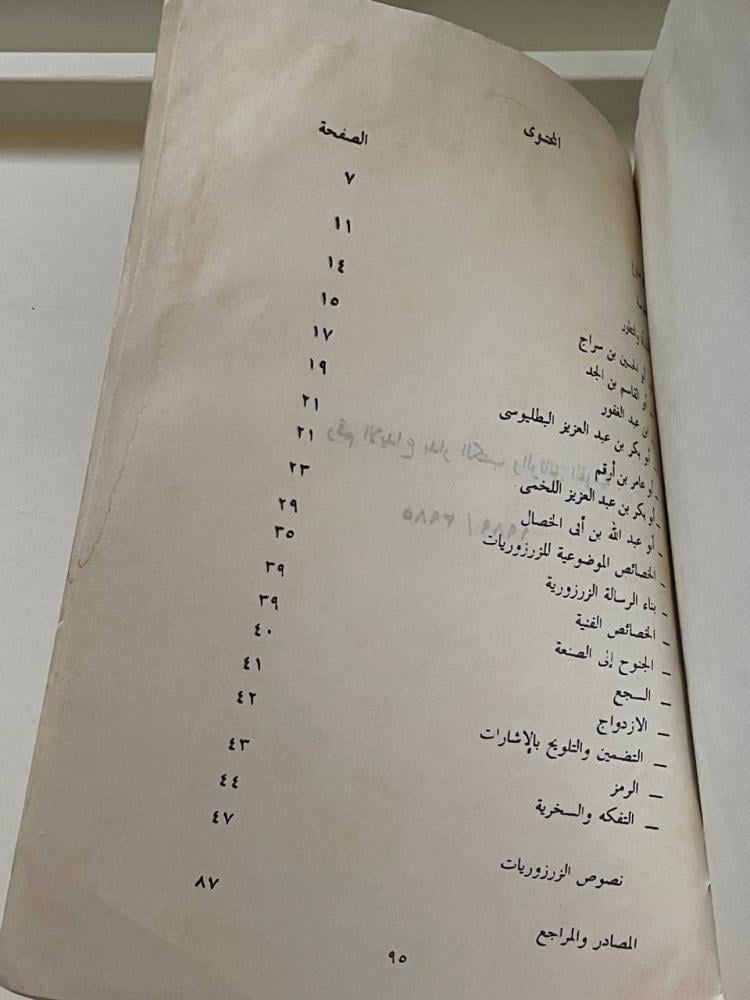 المحتوى الصفحة
٧
والتطور ١١
أبو الحسين بن سراج ١٤
أبو القاسم بن الجد ١٥
عبد الغفور ١٧
أبو بكر بن عبد العزيز البطليوسى ١٩
أبو عامر بن أرقم ٢١
أبو بكر بن عبد العزيز اللخمى ٢١
ـ أبو عبد الله بن أبى الخصال ٢٣
ـ الخصائص الموضوعية للزرزوريات ٢٩
ـ بناء الرسالة الزرزورية ٣٥
ـ الخصائص الفنية ٣٩
ـ الجنوح إلى الصنعة ٣٩
ـ السجع ٤٠
ـ الازدواج ٤١
ـ التضمين والتلويح بالإشارات ٤٢
ـ الرمز ٤٣
ـ التفكه والسخرية ٤٤
نصوص الزرزوريات ٤٧
المصادر والمراجع ٨٧
٩٥